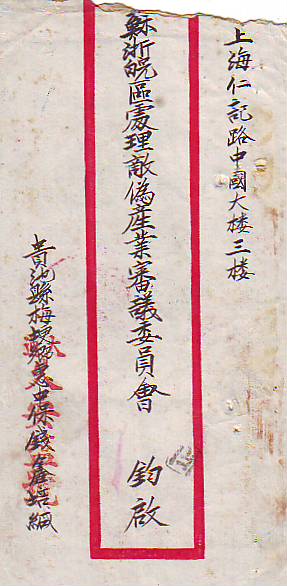 上海仁記路中國大楼三楼
蘇浙皖區處理敵偽產業審議委員會 鈞啟
貴池縣梅埂 保錢 緘